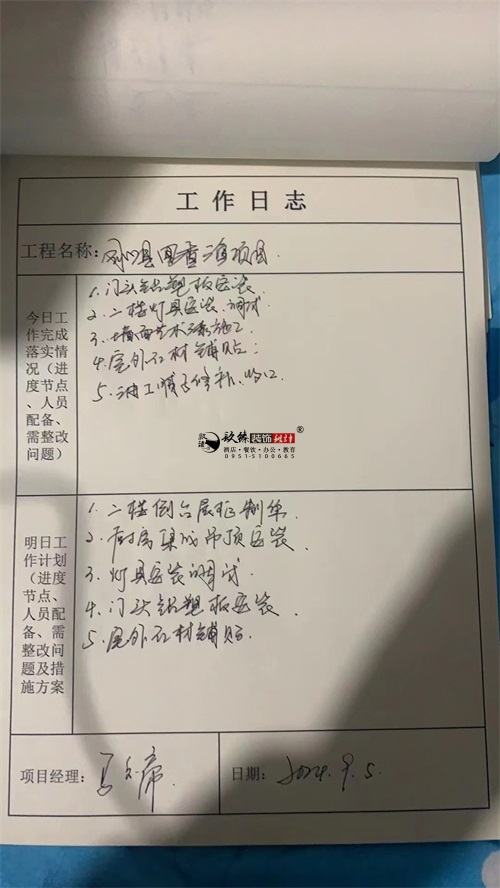 工作日志
工程名称:
项目
今日工作完成落实情况(进度节点、人员配备、需整改问题)
1. 门头铝塑板安装
2. 二楼灯具安装、调试
3. 墙面艺术漆施工
4. 屋外石材铺贴
5. 油工腻子修补、收口
玖臻装饰设计®
酒店·餐饮·办公·教育
0951-5100665
明日工作计划(进度节点、人员配备、需整改问题及措施方案
1. 二楼
2. 厨房集成吊顶安装
3. 灯具安装调试
4. 门头铝塑板安装
5. 屋外石材铺贴
项目经理:
日期: 2024.9.5.